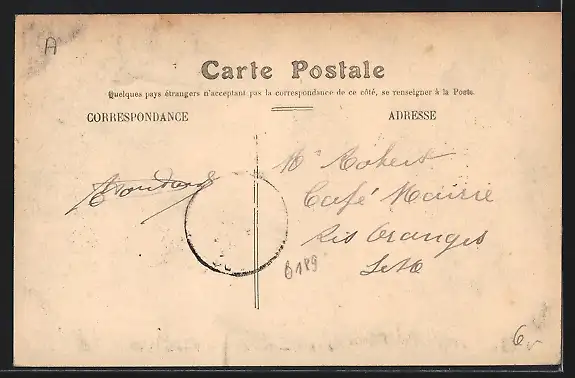 A
Carte Postale
Quelques pays étrangers n'acceptant pas la correspondance de ce côté, se renseigner à la Poste.
CORRESPONDANCE
ADRESSE
Mr Robert
Café Mairie
Ris Orangis
S et O
6189
6